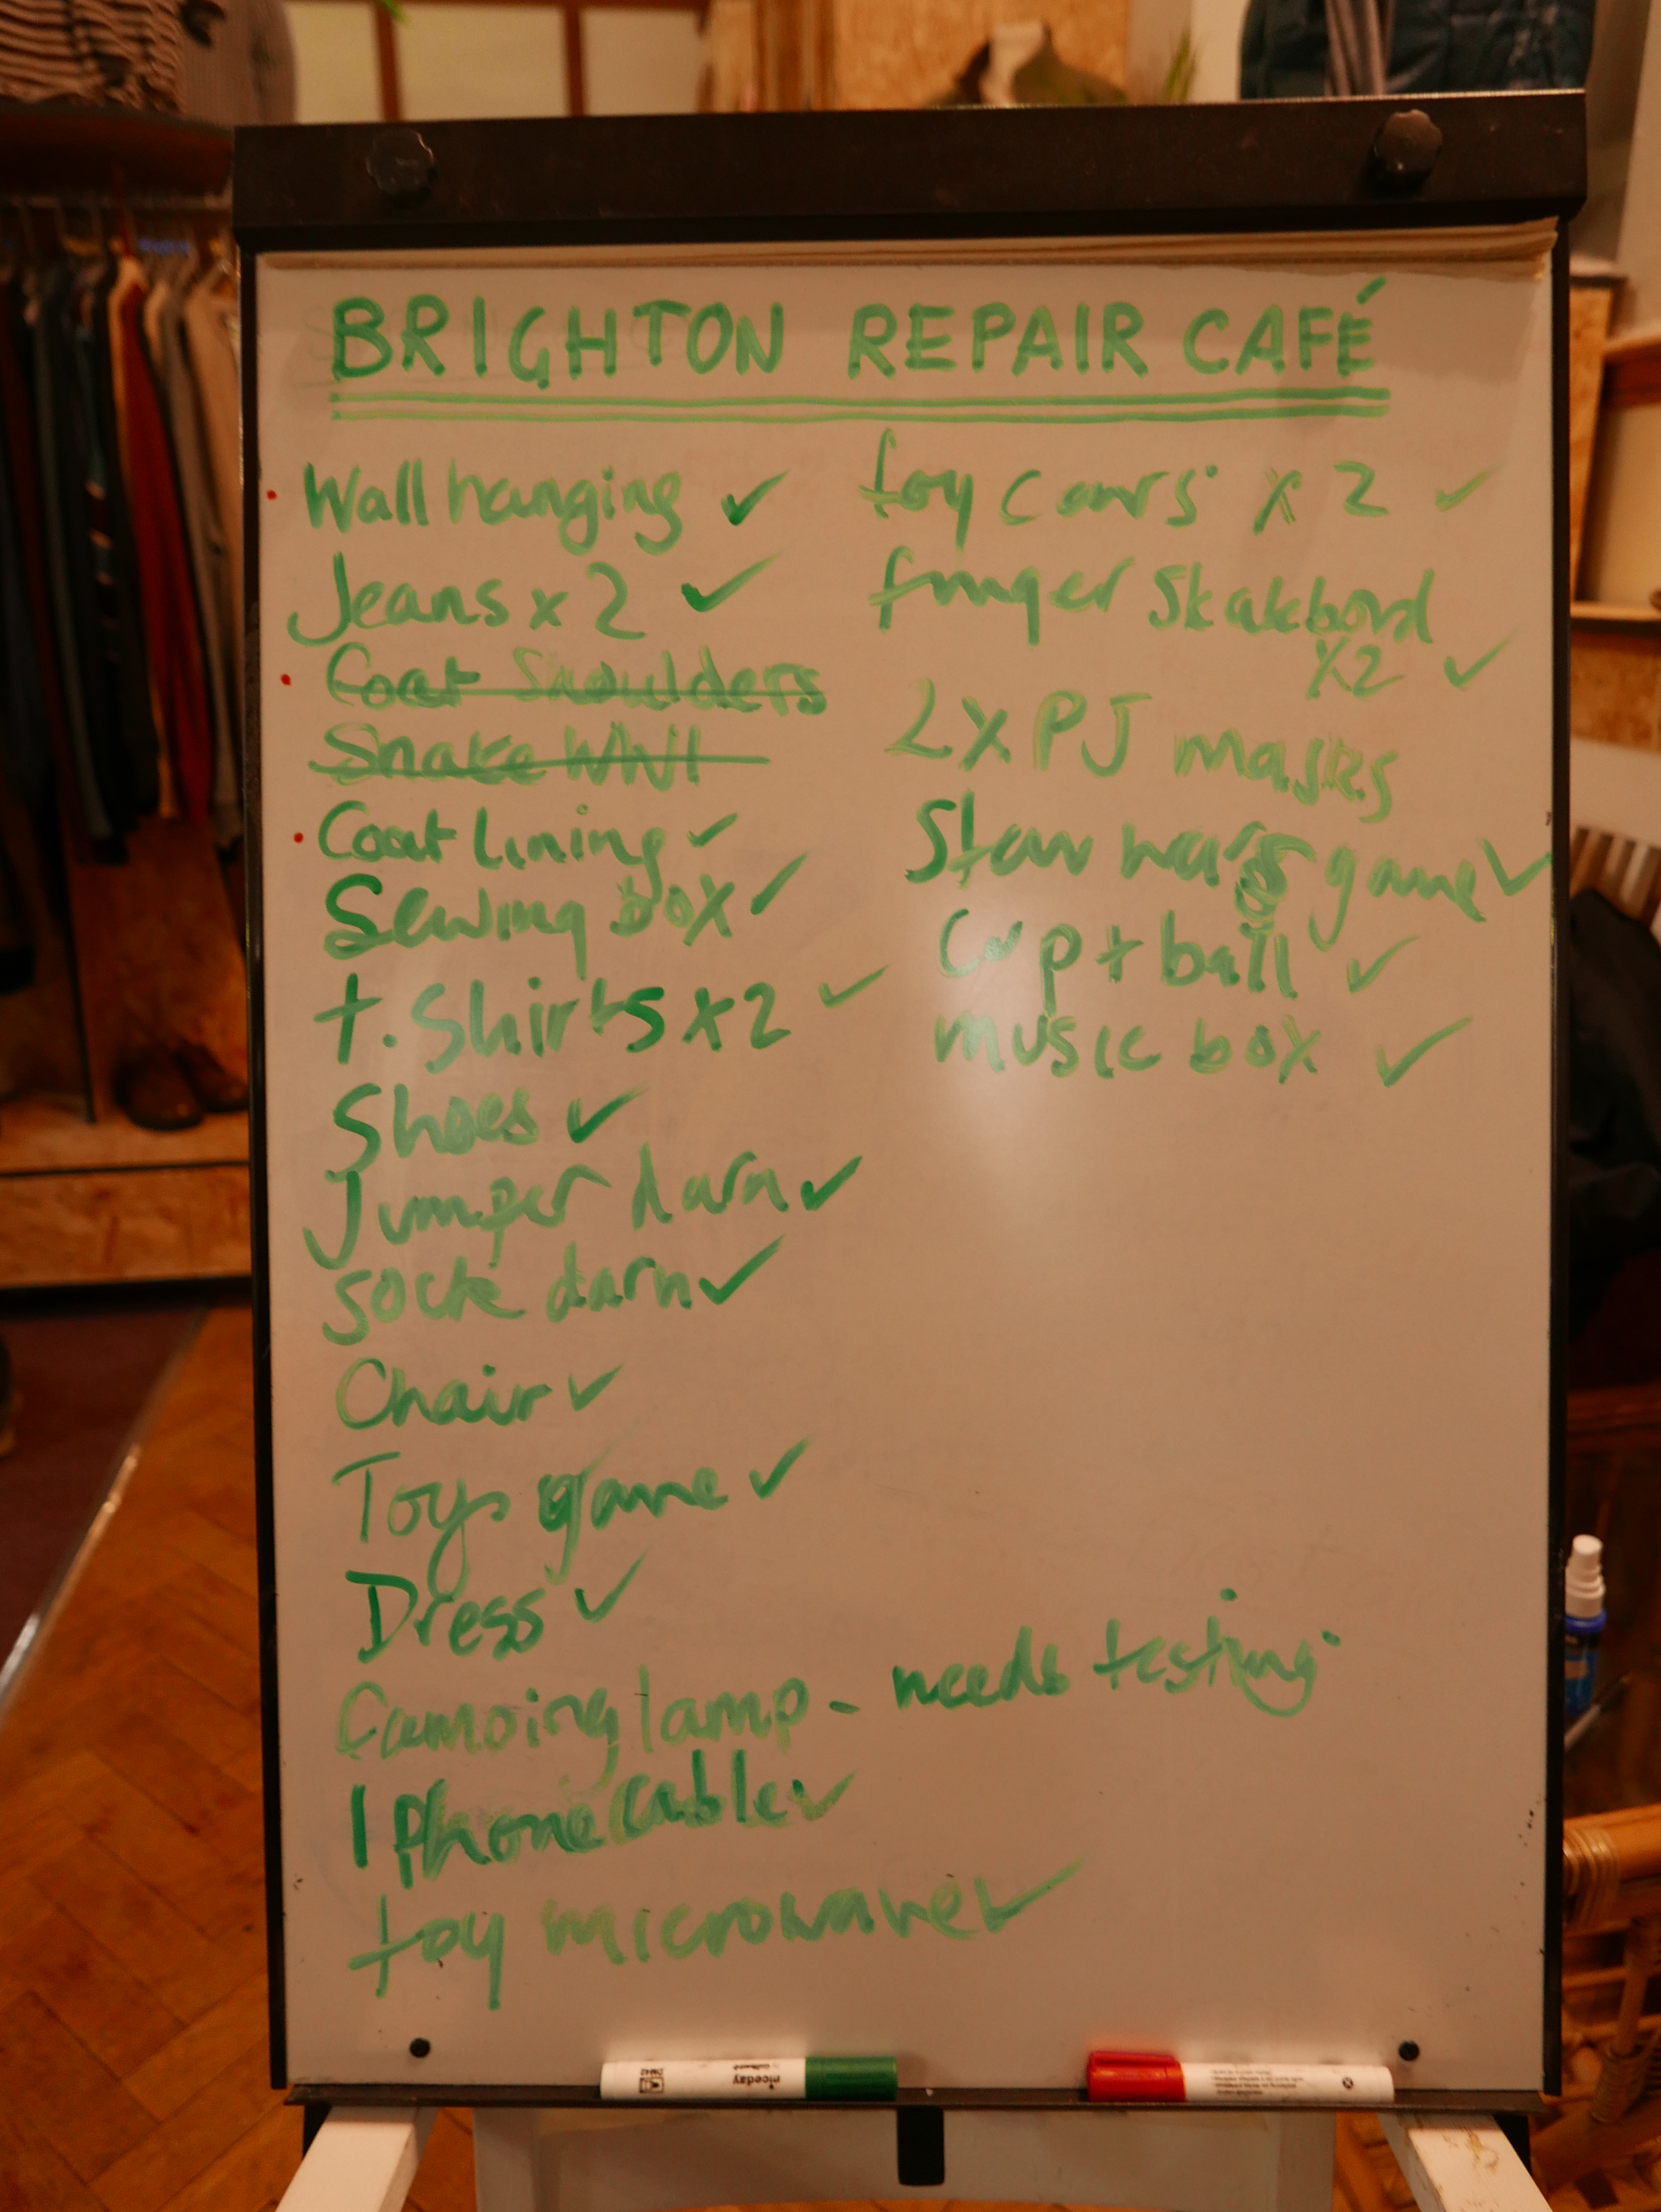 BRIGHTON REPAIR CAFÉ
Wall hanging ✓
Jeans x 2 ✓
Coat Shoulders
Snake
Coat Lining ✓
Sewing box ✓
t. Shirts x 2 ✓
Shoes ✓
Jumper darn ✓
sock darn ✓
Chair ✓
Toys game ✓
Dress ✓
Camping lamp - needs testing
I Phone Cable ✓
toy microwave ✓
toy cars x 2 ✓
finger Skatebord
x2 ✓
2x PJ masks
Star wars game ✓
Cup + ball ✓
music box ✓
niceday